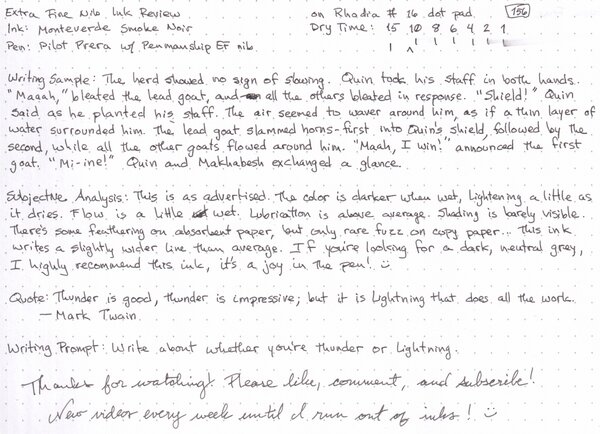 Extra Fine Nib Ink Review on Rhodia # 16 dot pad. 156
Ink: Monteverde Smoke Noir Dry Time: 15 10 8 6 4 2 1
Pen: Pilot Prera w/ Penmanship EF nib
Writing Sample: The herd showed no sign of slowing. Quin took his staff in both hands.
"Maaah," bleated the lead goat, and all the others bleated in response. "Shield!" Quin
said as he planted his staff. The air seemed to waver around him, as if a thin layer of
water surrounded him. The lead goat slammed horns-first into Quin's shield, followed by the
second, while all the other goats flowed around him. "Maah, I win!" announced the first
goat. "Mi-ine!" Quin and Makhabesh exchanged a glance.
Subjective Analysis: This is as advertised. The color is darker when wet, lightening a little as
it dries. Flow is a little wet. Lubrication is above average. Shading is barely visible.
There's some feathering on absorbent paper, but only rare fuzz on copy paper... This ink
writes a slightly wider line than average. If you're looking for a dark, neutral grey,
I highly recommend this ink, it's a joy in the pen! :)
Quote: Thunder is good, thunder is impressive; but it is lightning that does all the work.
— Mark Twain
Writing Prompt: Write about whether you're thunder or lightning.
Thanks for watching! Please like, comment, and subscribe!
New videos every week until I run out of inks! :)